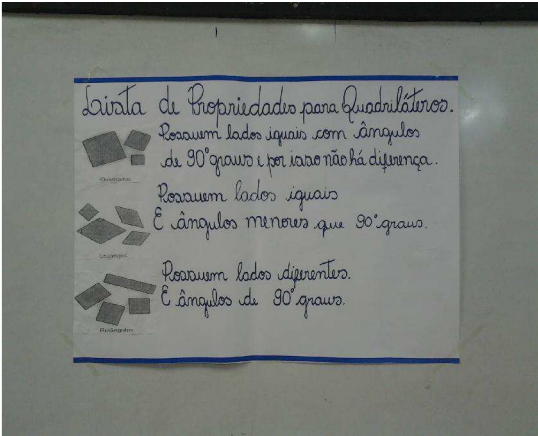 Lista de Propriedades para Quadriláteros.
Possuem lados iguais com ângulos
de 90° graus e por isso não há diferença.
Quadrados
Possuem lados iguais
E ângulos menores que 90° graus.
Losangos
Possuem lados diferentes.
E ângulos de 90° graus.
Retângulos